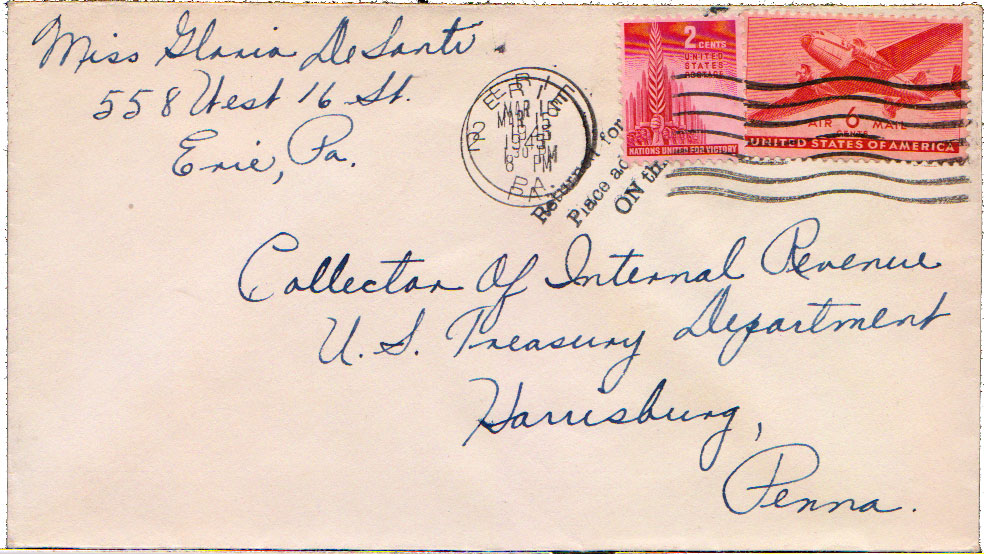 Miss Gloria DeSanti
558 West 16 St.
Erie, Pa.
ERIE
MAR
1943
8 PM
PA.
2 CENTS
UNITED
STATES
POSTAGE
NATIONS UNITED FOR VICTORY
AIR 6 MAIL
CENTS
UNITED STATES OF AMERICA
Return for
Place
ON
Collector Of Internal Revenue
U. S. Treasury Department
Harrisburg,
Penna.